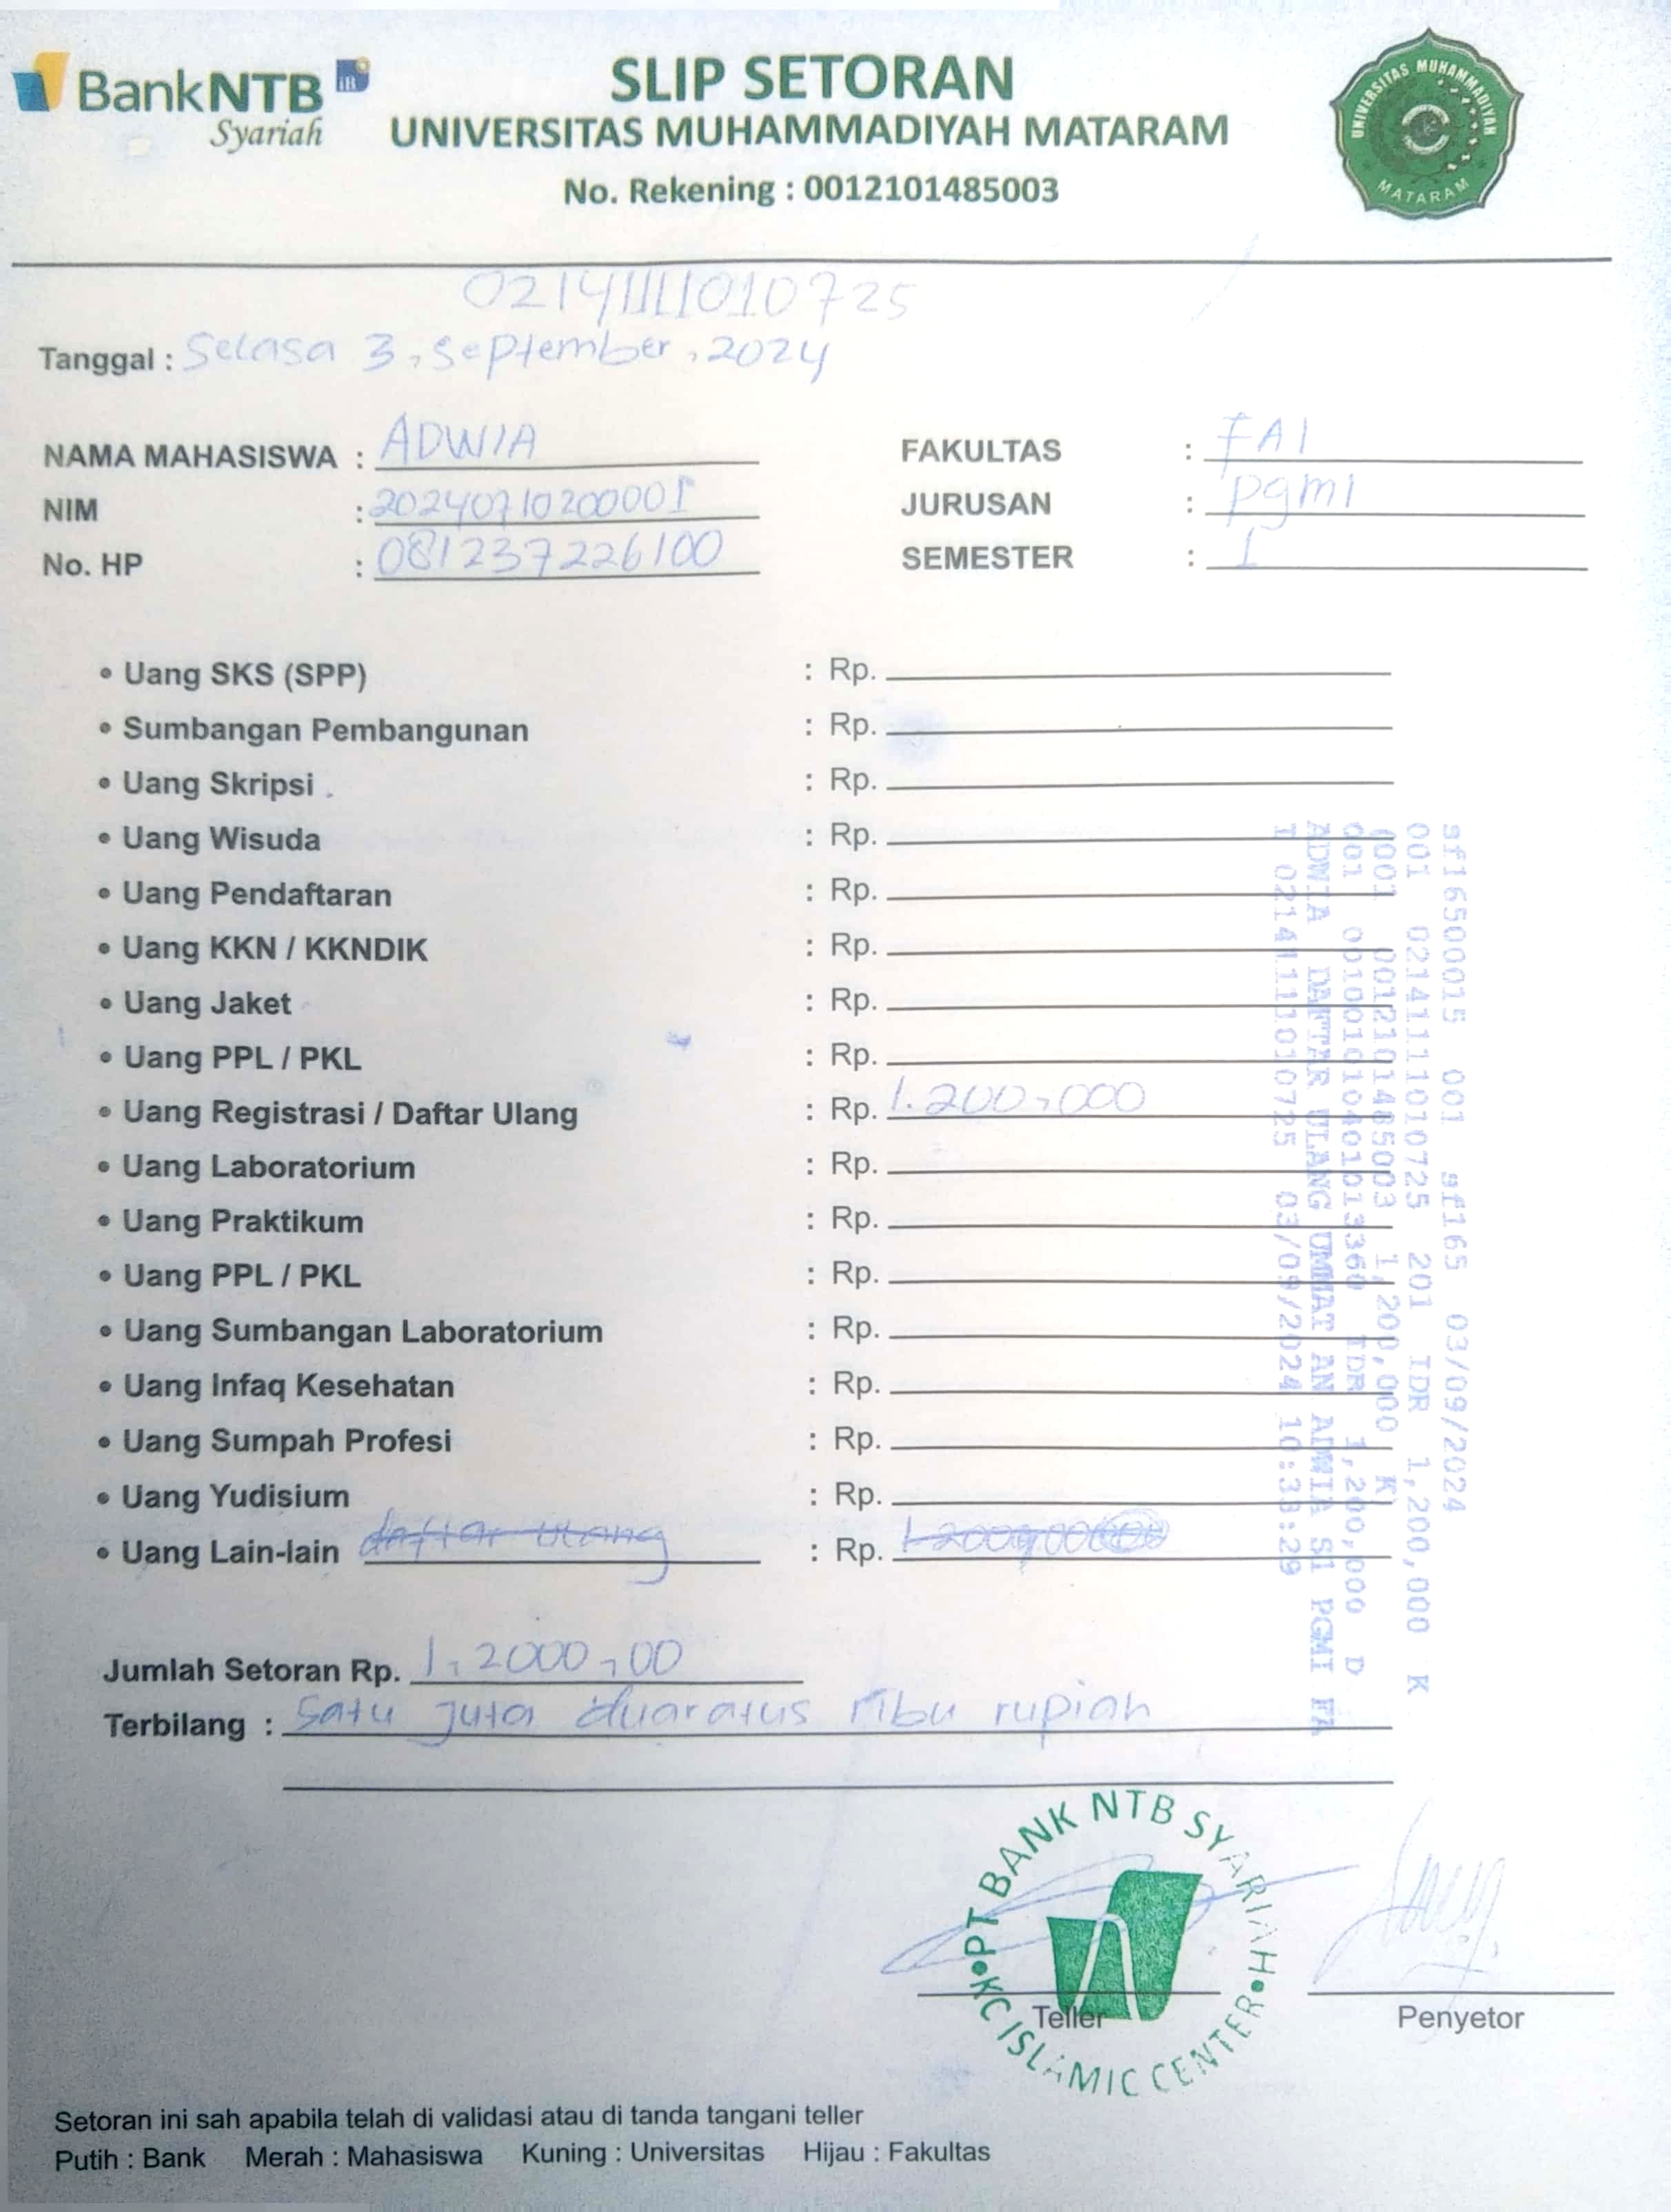 BankNTB iB
Syariah
SLIP SETORAN
UNIVERSITAS MUHAMMADIYAH MATARAM
No. Rekening : 0012101485003
UNIVERSITAS MUHAMMADIYAH
MATARAM
0214111101010725
Tanggal : Selasa 3, September, 2024
NAMA MAHASISWA : ADWIA
NIM : 20240710200001
No. HP : 081237226100
FAKULTAS : FAI
JURUSAN : pgmi
SEMESTER : I
• Uang SKS (SPP) : Rp.
• Sumbangan Pembangunan : Rp.
• Uang Skripsi : Rp.
• Uang Wisuda : Rp.
• Uang Pendaftaran : Rp.
• Uang KKN / KKNDIK : Rp.
• Uang Jaket : Rp.
• Uang PPL / PKL : Rp.
• Uang Registrasi / Daftar Ulang : Rp. 1.200,000
• Uang Laboratorium : Rp.
• Uang Praktikum : Rp.
• Uang PPL / PKL : Rp.
• Uang Sumbangan Laboratorium : Rp.
• Uang Infaq Kesehatan : Rp.
• Uang Sumpah Profesi : Rp.
• Uang Yudisium : Rp.
• Uang Lain-lain daftar ulang : Rp.
Jumlah Setoran Rp. 1,2000,00
Terbilang : Satu juta duaratus ribu rupiah
sf16500015 001 sf165 03/09/2024
001 0214111101010725 201 IDR 1,200,000 K
0001 0012101485003 1,200,000 K
001 IDR 1,200,000 D
ADWIA DAFTAR ULANG UMMAT AN ADWIA S1 PGMI FA
03/09/2024 10:33:29
PT BANK NTB SYARIAH
KC ISLAMIC CENTER
Teller
Penyetor
Setoran ini sah apabila telah di validasi atau di tanda tangani teller
Putih : Bank Merah : Mahasiswa Kuning : Universitas Hijau : Fakultas